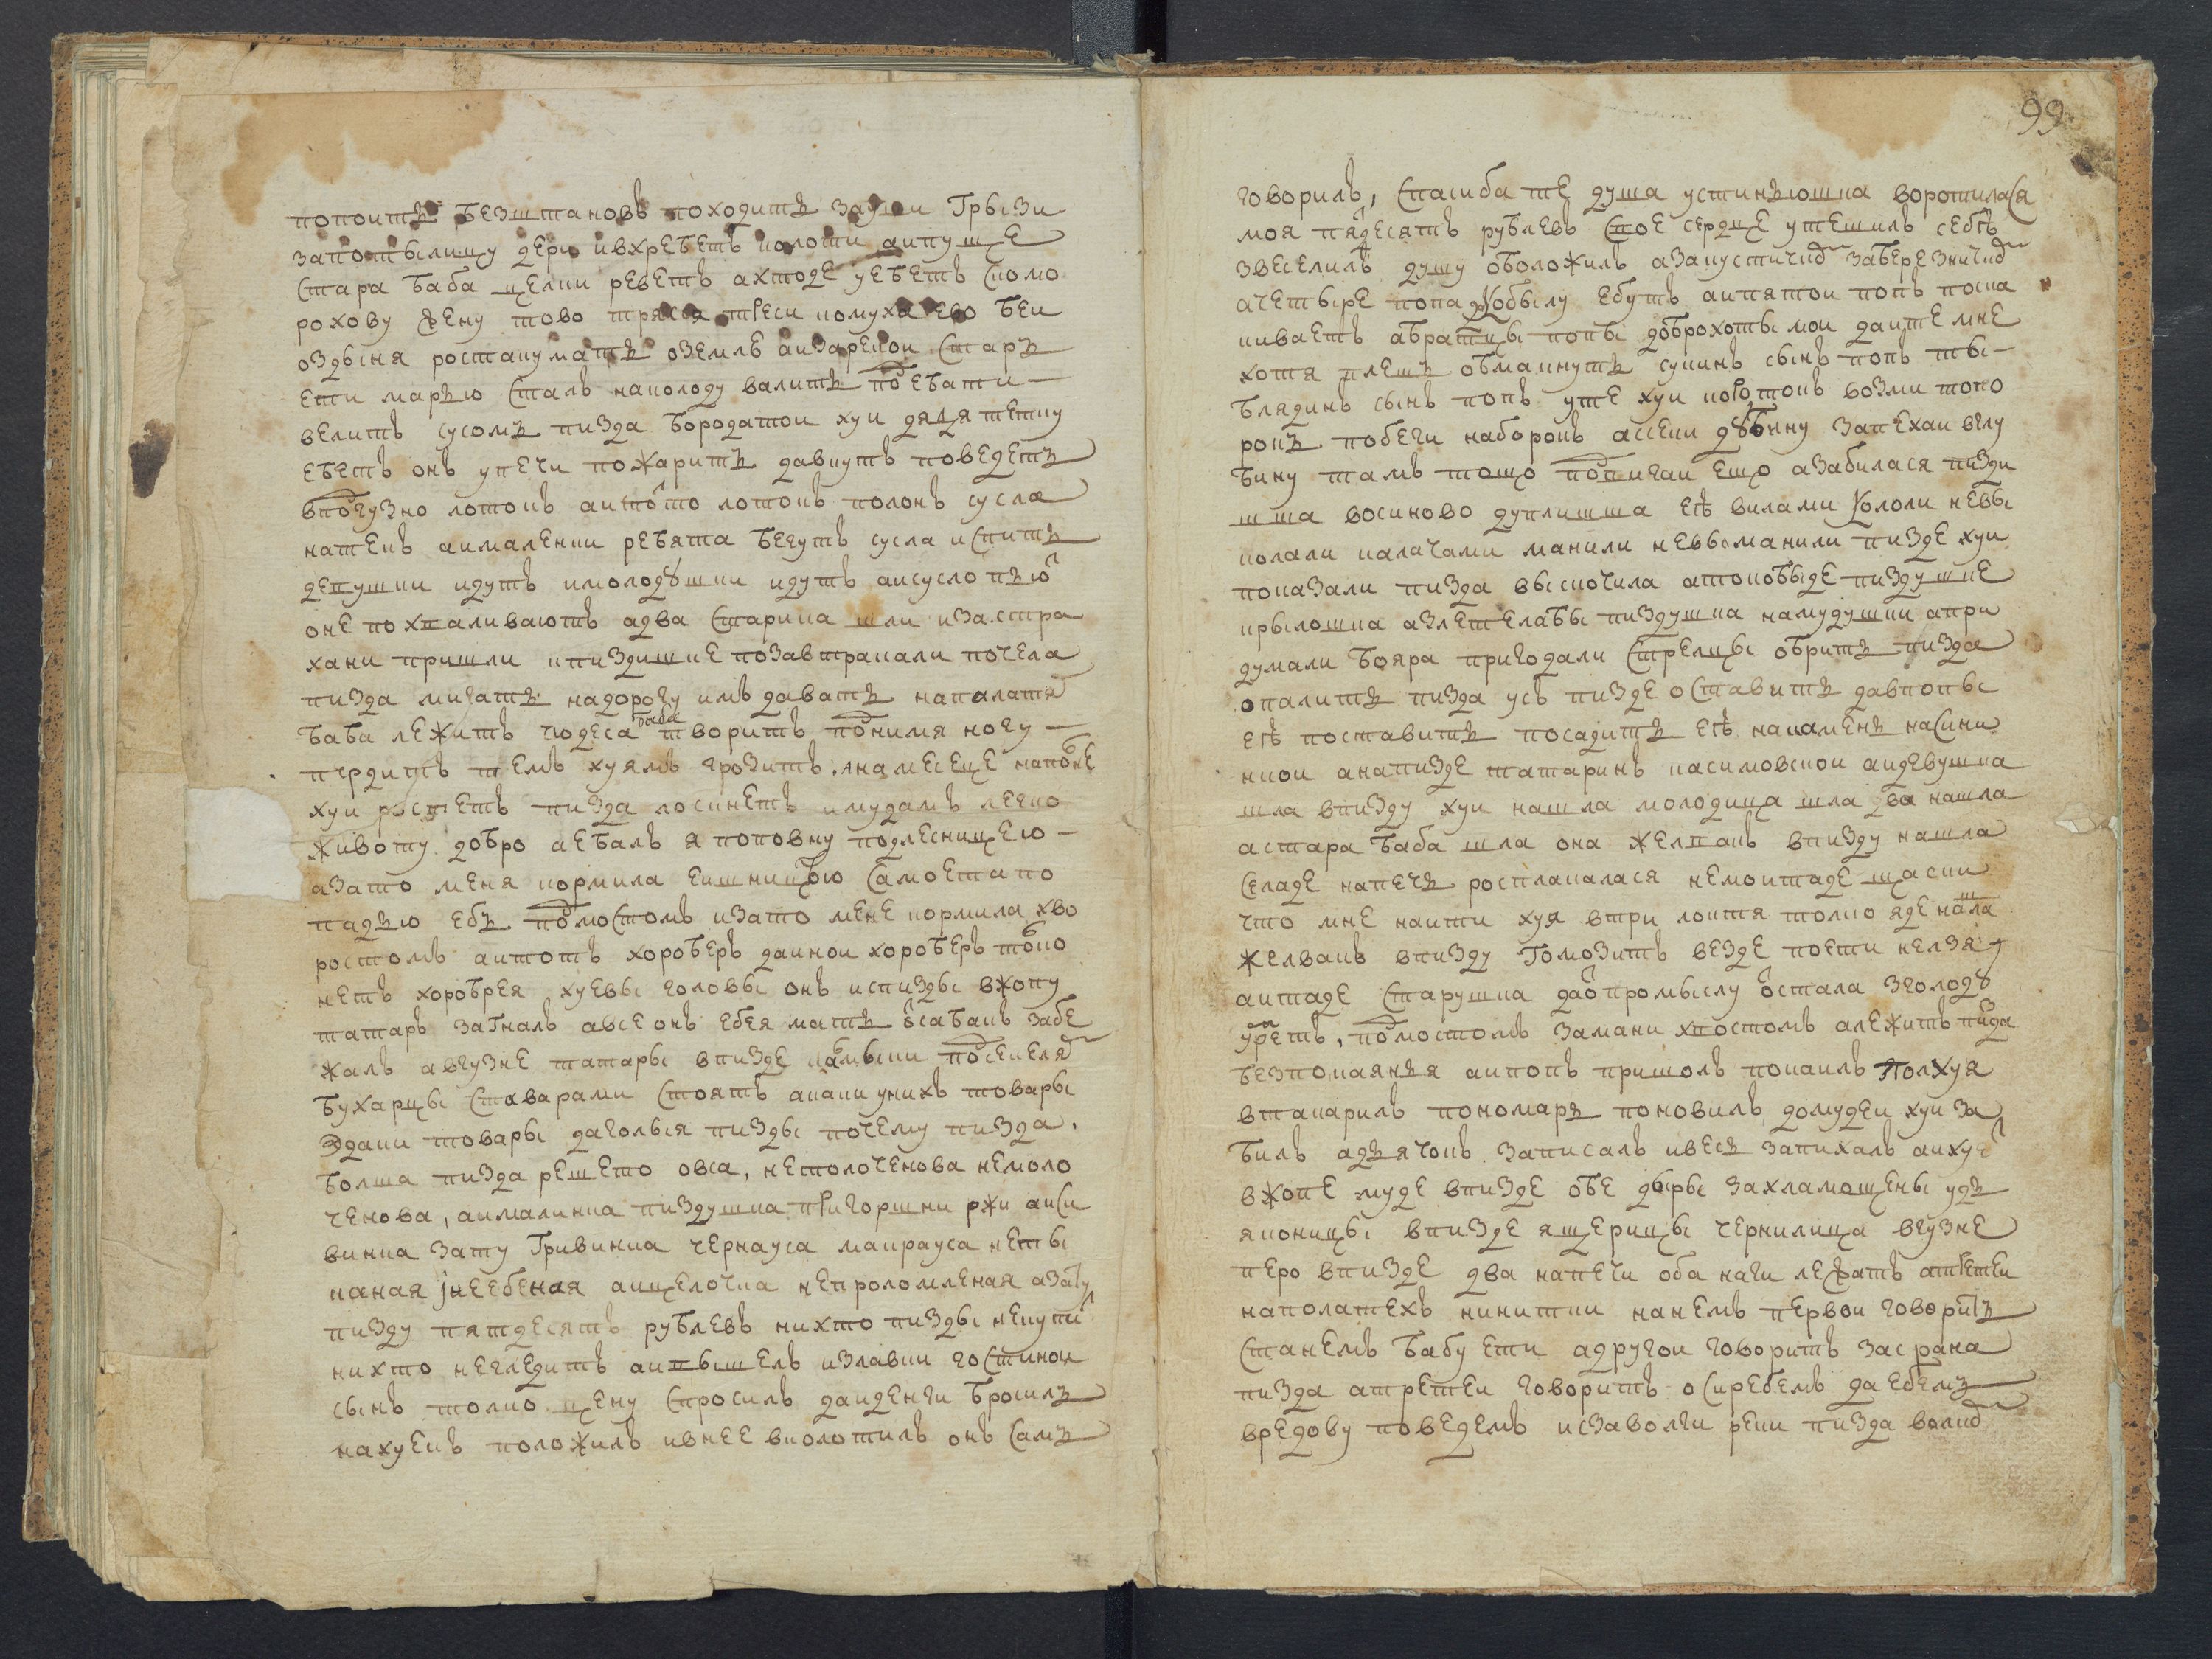 попоитъ безштановъ походитъ зауши Грызи
запотылицу дери ивхребетъ колоти аипуще
стара баба щелки реветъ ахтоде уебетъ скомо
рохову жену тово трясся трєси комуха ево беи
оздыня ростакуматъ оземлѣ аизарецои старъ
ети марью сталъ наколоду валитъ подъ ебати
велитъ сусомъ пизда бородатои хуи дядя тетку
ебетъ онъ упечи пожаритъ давкутъ поведетъ
вподгузно лотокъ аитото лотокъ полонъ сусла
натекъ аималенки ребята бегутъ сусла испитъ
девушки идутъ имолодушки идутъ аисусло пью
оне похваливаютъ адва старика шли иза.стра
хани пришли кпиздишке позавтракали почела
пизда мигатъ надорогу имъ даватъ напалатя
баба лежитъ чюдеса баба творитъ поднимя ногу
пердитъ темъ хуямъ грозитъ. анамесеце наповне
хуи ростетъ пизда лоснетъ имудамъ легко
животу добро аебалъ я поповну подлесницею
азато меня кормила еишницою самоетапо
падью ебъ подмостомъ изато мене кормила хво
ростомъ аитотъ хороберъ даинои хороберъ товко
нетъ хоробрея хуевы головы онъ испизды вжопу
татаръ загналъ авсе онъ ебея матъ осабакъ забе
жалъ авгузне татары впизде камыки подсекеля
бухарцы ставарами стоятъ акаки унихъ товары
эдаки товары даголыя пизды почему пизда.
болша пизда решето овса, нетолоченова немоло
ченова, аималинка пиздушка пригоршни ржи аиси
винка зату гривинка чернауса макрауса неты
каная інеебеная аищелочка непроломленая азату
пизду пятдесятъ рублевъ нихто пизды некупи
нихто негледитъ аивышелъ излавки гостинои
сынъ толко цену спросилъ даиденги бросилъ
нахуекъ положилъ ивнее вколотилъ онъ самъ
99
говорилъ, спасиба те душа устинъюшка воротилася
моя пядесятъ рублевъ свое сердце утешилъ себѣ
звеселилъ душу оболожилъ азакустичкомъ заберезничкомъ
ачетыре попа кобылу ебутъ аипятои попъ поска
киваетъ абратцы попы доброхоты мои даите мне
хотя плешъ обмакнутъ сукинъ сынъ попъ ты
блядинъ сынъ попъ уте хуи коротокъ возми топо
рокъ побеги наборокъ ассеки дубину запехаи вглу
бину тамъ тощо подпигаи ещо азабилася пизди
шта восиново дуплишта еѣ вилами кололи невы
колали калачами манили невыманили пизде хуи
показали пизда выскочила атокобыде пиздушке
крылошка азлетелабы пиздушка намудушки апри
думали бояра пригодали стрелцы обритъ пизда
опалитъ пизда усъ пизде оставитъ давпопы
еѣ поставитъ посадитъ еѣ накаменъ насини
нкои анапизде татаринъ касимовскои аидевушка
шла впизду хуи нашла молодица шла два нашла
астара баба шла она желвакъ впизду нашла
селаде напечъ росплакалася немоитаде щаски
что мне наити хуя втри локтя толко яде нашла
желвакъ впизду гомозитъ везде поети нелзя
аитаде старушка даопромыслу остала зголоду
умретъ, подмостомъ замани хвостомъ алежитъ пизда
безпокаянъя аипопъ пришолъ покаилъ полхуя
втакарилъ пономаръ поновилъ домудеи хуи за
билъ адъячокъ записалъ ивесь запихалъ аихуи
вжопе муде впизде обе дыры захламощены удъ
яконицы впизде ящерицы чернилица вгузне
перо впизде два напечи оба наги лежатъ атретеи
наполатехъ нинитки нанемъ первои говоритъ
станемъ бабу ети адругои говоритъ засрана
пизда атретеи говоритъ оскребемъ даебемъ
вредову поведемъ исзаволги реки пизда волко